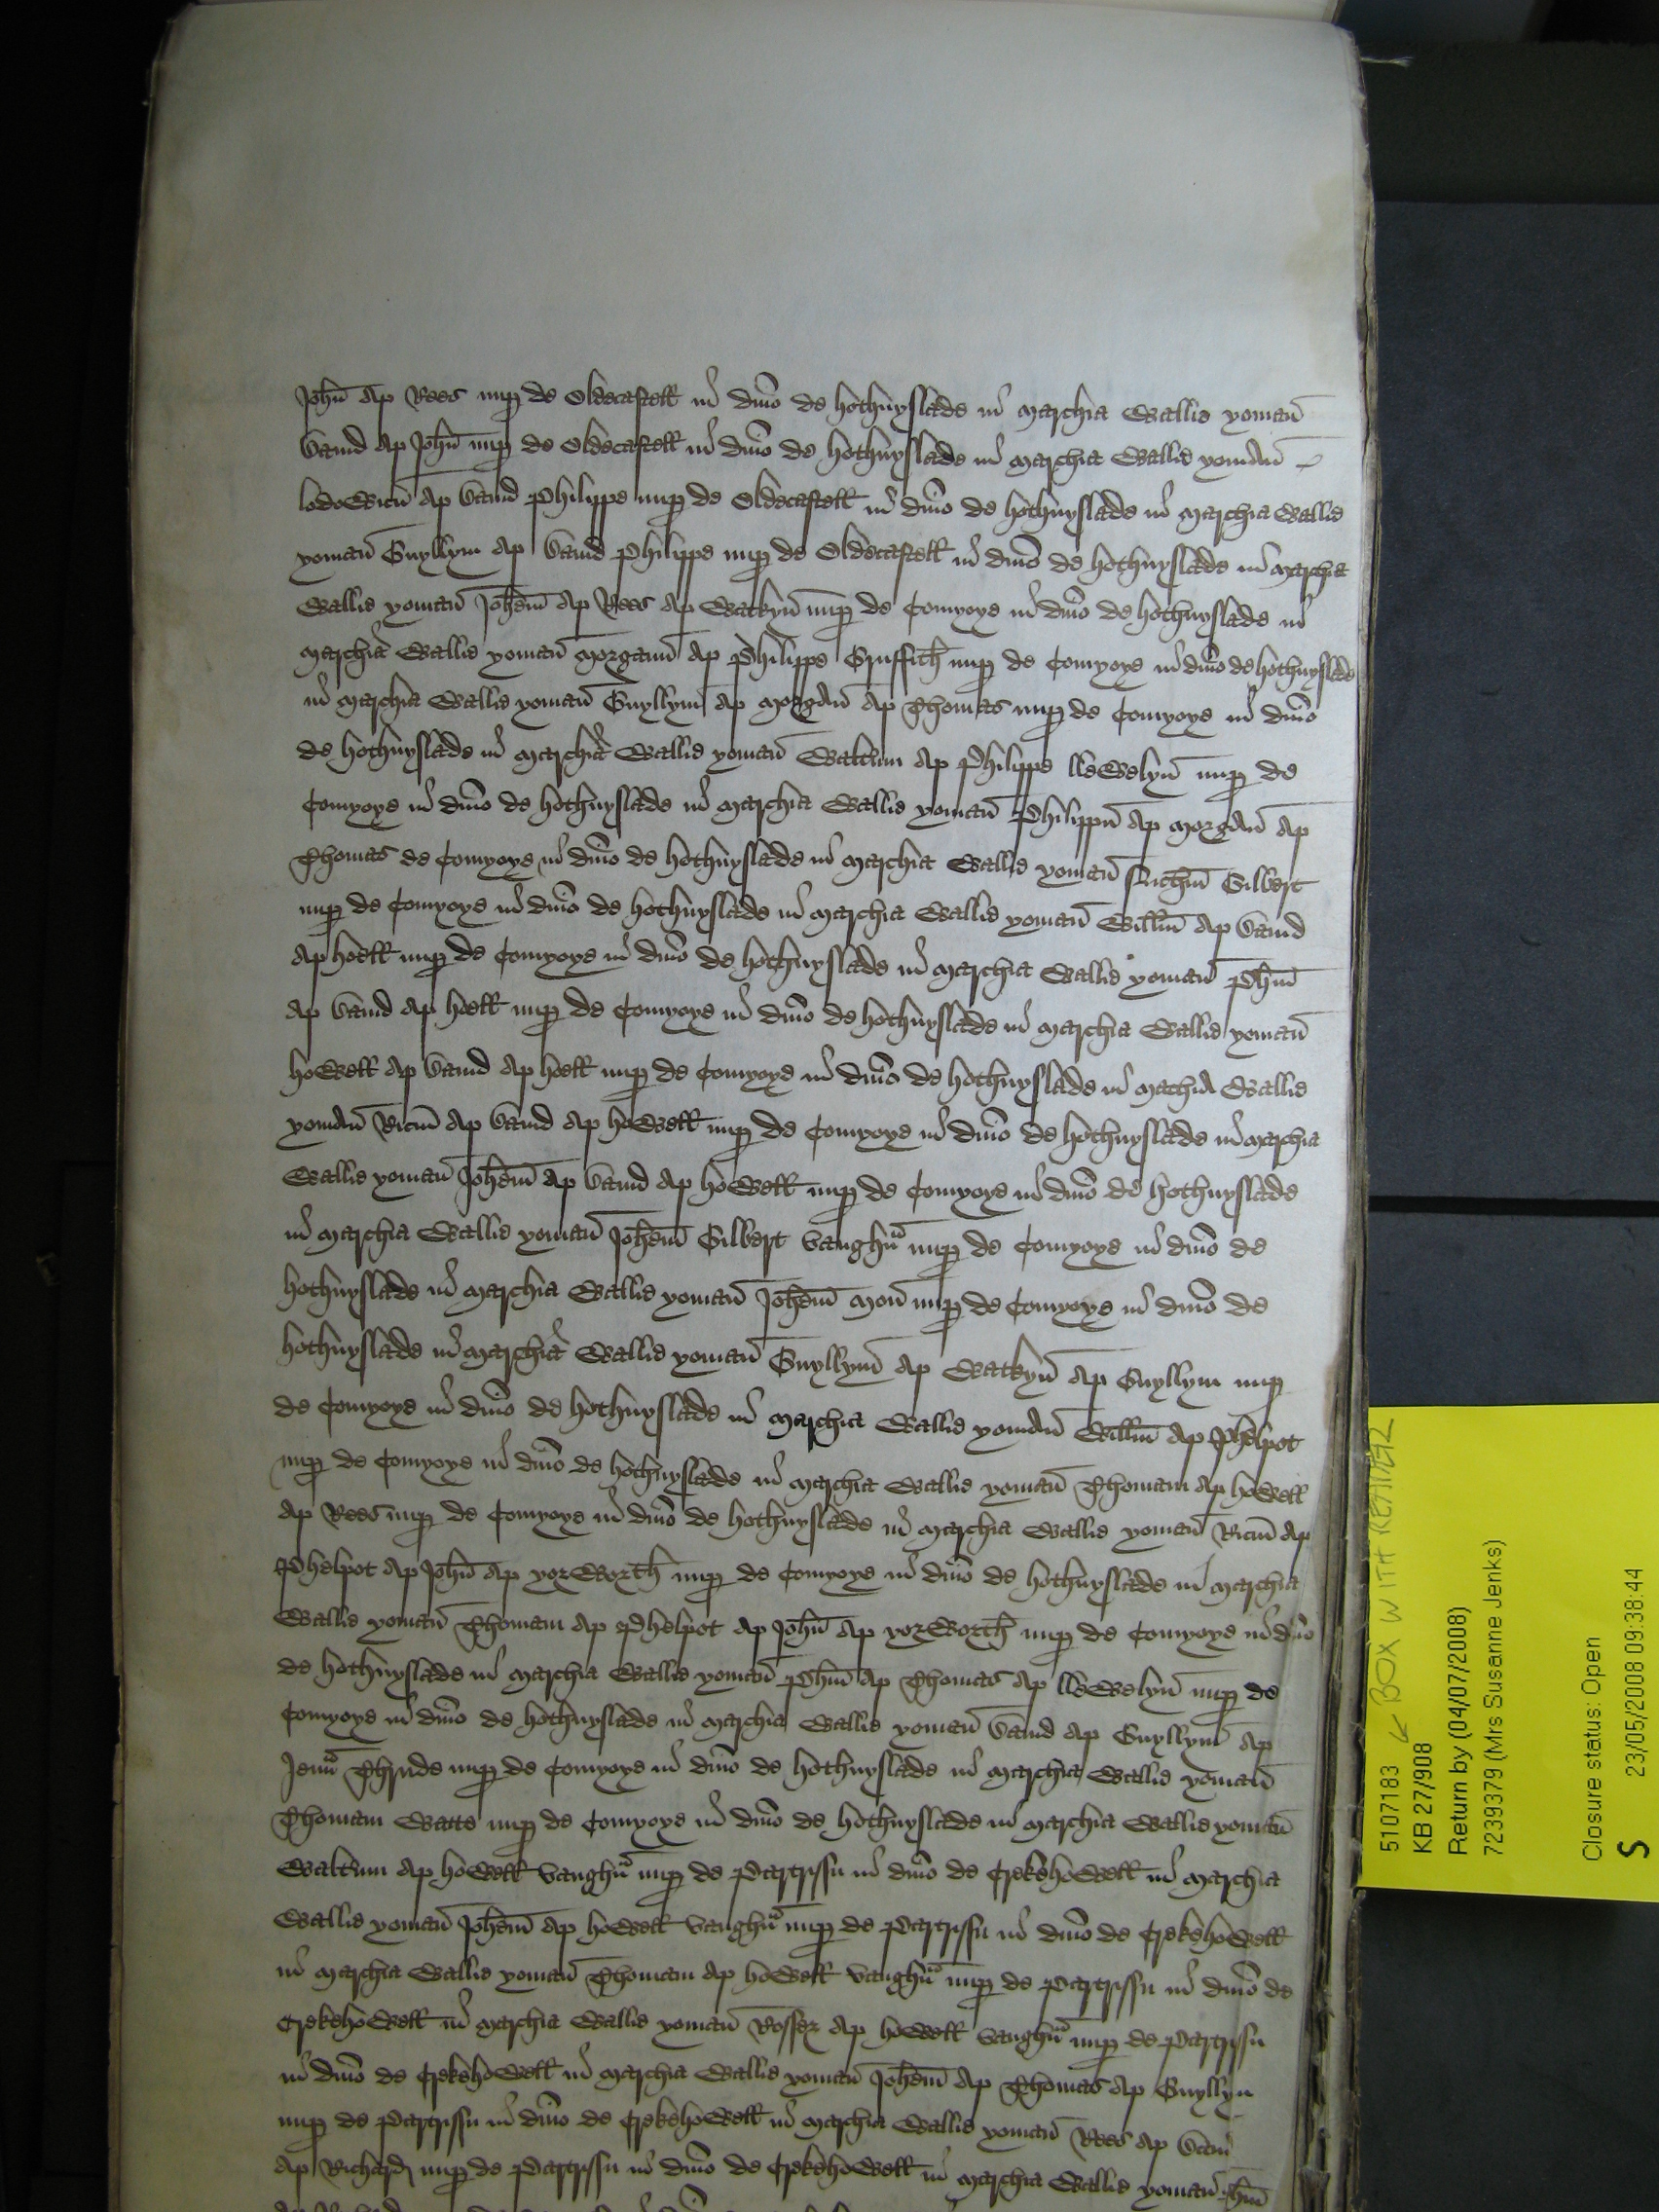 Joh̄n ap Rees nup de Oldecastell in dn̄io de hothnyslade in marchia Wallie yoman̄
Dauid ap Joh̄n nup de Oldecastell in dn̄io de hothnyslade in marchia Wallie yoman̄
lodowicū ap Dauid Philippe nup de Oldecastell in dn̄io de hothnyslade in marchia Wallie
yoman̄ Guyllym ap Dauid Philippe nup de Oldecastell in dn̄io de hothnyslade in marchia
Wallie yoman̄ Joh̄em ap Rees ap Watkyn̄ nup de Comyoye in dn̄io de hothnyslade in
marchia Wallie yoman̄ Morganū ap Philippe Gruffith̄ nup de Comyoye in dn̄io de hothnyslade
in marchia Wallie yoman̄ Guyllym̄ ap Morgan̄ ap Thomas nup de Comyoye in dn̄io
de hothnyslade in marchia Wallie yoman̄ Walt̄um ap Philippe llewelyn̄ nup de
Comyoye in dn̄io de hothnyslade in marchia Wallie yoman̄ Philippū ap Morgan̄ ap
Thomas de Comyoye in dn̄io de hothnyslade in marchia Wallie yoman̄ Gilbert
nup de Comyoye in dn̄io de hothnyslade in marchia Wallie yoman̄ Will̄m ap Dauid
ap hoell nup de Comyoye in dn̄io de hothnyslade in marchia Wallie yoman̄ Ph̄m
ap Dauid ap hoell nup de Comyoye in dn̄io de hothnyslade in marchia Wallie yoman̄
howell ap Dauid ap hoell nup de Comyoye in dn̄io de hothnyslade in machia Wallie
yoman̄ Ricm̄ ap Dauid ap howell nup de Comyoye in dn̄io de hothnyslade in marchia
Wallie yoman̄ Joh̄em ap Dauid ap howell nup de Comyoye in dn̄io de hothnyslade
in marchia Wallie yoman̄ Joh̄em Gilbert vaughn̄ nup de Comyoye in dn̄io de
hothnyslade in marchia Wallie yoman̄ Joh̄em Mon̄ nup de Comyoye in dn̄io de
hothnyslade in marchia Wallie yoman̄ Guyllym̄ ap Watkyn̄ ap Guyllym nup
de Comyoye in dn̄io de hothnyslade in marchia Wallie yoman̄ Will̄m ap Phelpot
nup de Comyoye in dn̄io de hothnyslade in marchia Wallie yoman̄ Thomam ap howell
ap Rees nup de Comyoye in dn̄io de hothnyslade in marchia Wallie yoman̄ Ricm̄ ap
Phelpot ap Joh̄n ap yorworth̄ nup de Comyoye in dn̄io de hothnyslade in marchia
Wallie yoman̄ Thomam ap Phelpot ap Joh̄n ap yorworth̄ nup de Comyoye in dn̄io
de hothnyslade in marchia Wallie yoman̄ Ph̄m ap Thomas ap llewelyn̄ nup de
Comyoye in dn̄io de hothnyslade in marchia Wallie yoman̄ Dauid ap Guyllym̄ ap
nup de Comyoye in dn̄io de hothnyslade in marchia Wallie yoman̄
Thomam Watte nup de Comyoye in dn̄io de hothnyslade in marchia Wallie yoman̄
Walt̄um ap howell vaughn̄ nup de Partrissu in dn̄io de Crekehowell in marchia
Wallie yoman̄ Joh̄em ap howell vaughn̄ nup de Partrissu in dn̄io de Crekehowell
in marchia Wallie yoman̄ Thomam ap howell vaughn̄ nup de Partrissu in dn̄io de
Crekehowell in marchia Wallie yoman̄ Rosser ap howell vaughn̄ nup de Partrissu
in dn̄io de Crekehowell in marchia Wallie yoman̄ Joh̄em ap Thomas ap Guyllyn
nup de Partrissu in dn̄io de Crekehowell in marchia Wallie yoman̄ Rees ap
ap Richard nup de Partrissu in dn̄io de Crekehowell in marchia Wallie yoman̄
5107183 ← BOX WITH
KB 27/908
Return by (04/07/2008)
7239379 (Mrs Susanne Jenks)
Closure status: Open
S 23/05/2008 09:38:44